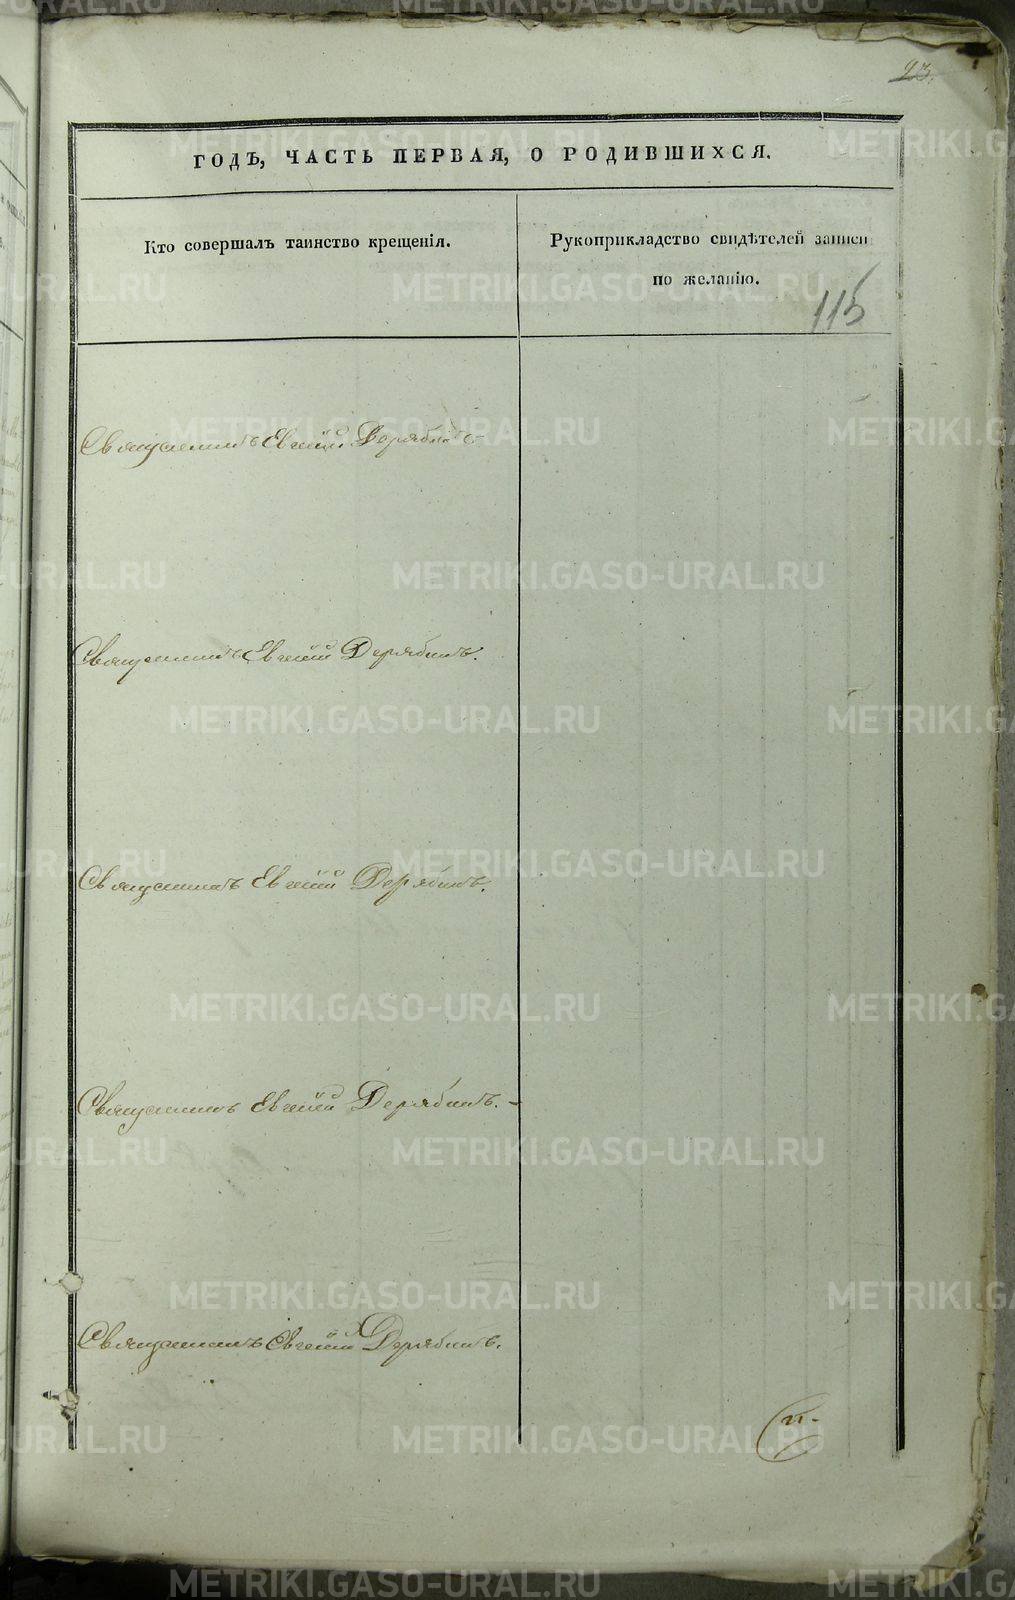 23.
ГОДЪ, ЧАСТЬ ПЕРВАЯ, О РОДИВШИХСЯ.
Кто совершалъ таинство крещенія.
Рукоприкладство свидѣтелей записи
по желанію.
115
Священникъ Евгеній Дерябинъ.
Священникъ Евгеній Дерябинъ.
Священникъ Евгеній Дерябинъ.
Священникъ Евгеній Дерябинъ.-
Священникъ Евгеній Дерябинъ.
METRIKI.GASO-URAL.RU